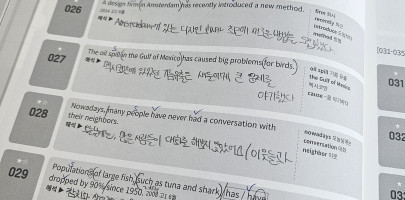 026
A design firm in Amsterdam has recently introduced a new method.
해석 ▶ Amsterdam에 있는 디자인 회사는 최근에 새로운 방법을
firm 회사
recently 최근
introduce 도입하다
method 방법
027
The oil spill in the Gulf of Mexico has caused big problems for birds.
해석 ▶ 멕시코만에 있었던 기름유출은 새들에게 큰 문제를
야기했다
oil spill 기름 유출
the Gulf of Mexico
멕시코만
cause ~을 야기하다
028
Nowadays, many people have never had a conversation with
their neighbors.
해석 ▶ 오늘날에는, 많은 사람들이 대화를 해본적 없었어요 (이웃들과
nowadays 오늘날에는
conversation 대화
neighbor 이웃
029
Populations of large fish, such as tuna and shark, has / have
dropped by 90% since 1950.
해석 ▶ 참치와
[031-035
031
032